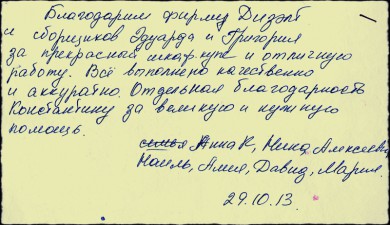 Благодарим фирму Дизэт
и сборщиков Эдуарда и Григория
за прекрасный шкаф-купе и отличную
работу. Всё выполнено качественно
и аккуратно. Отдельная благодарность
Константину за великую и нужную
помощь.
семья Анна К, Нина Алексеевна
Наиль, Амия, Давид, Мария.
29.10.13.